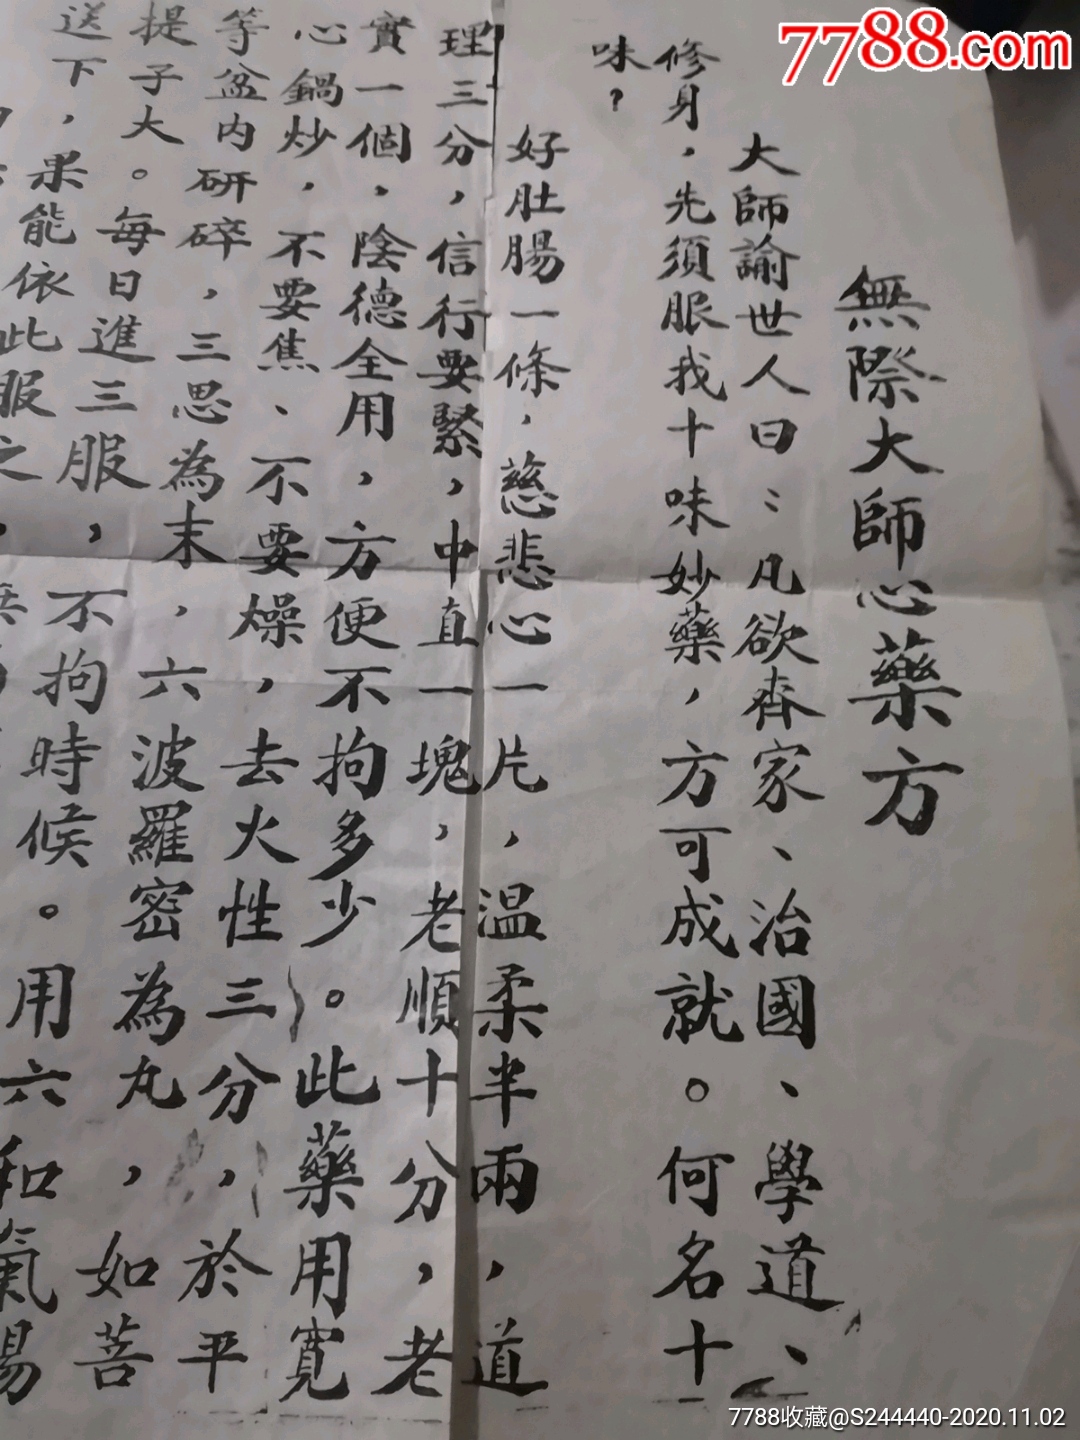 7788.com
無際大師心藥方
大師諭世人曰：凡欲齊家、治國、學道、
修身，先須服我十味妙藥，方可成就。何名十
味？
好肚腸一條，慈悲心一片，温柔半兩，道
理三分，信行要緊，中直一塊，老順十分，老
實一個，陰德全用，方便不拘多少。此藥用寬
心鍋炒，不要焦、不要燥，去火性三分，於平
等盆内研碎，三思為末，六波羅密為丸，如菩
提子大。每日進三服，不拘時候。用六和氣湯
送下，果能依此服之，
7788收藏@S244440-2020.11.02